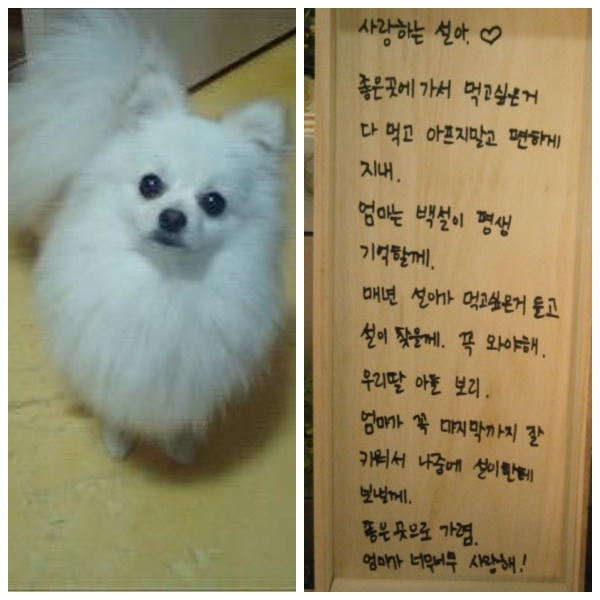 사랑하는 설아. ♡
좋은곳에가서 먹고싶은거
다 먹고 아프지말고 편하게
지내.
엄마는 백설이 평생
기억할께.
매년 설아가 먹고싶은거 들고
설이 찾을께. 꼭 와야해.
우리딸 아들 보리.
엄마가 꼭 마지막까지 잘
키워서 나중에 설이한테
보낼께.
좋은곳으로 가렴.
엄마가 너무너무 사랑해!